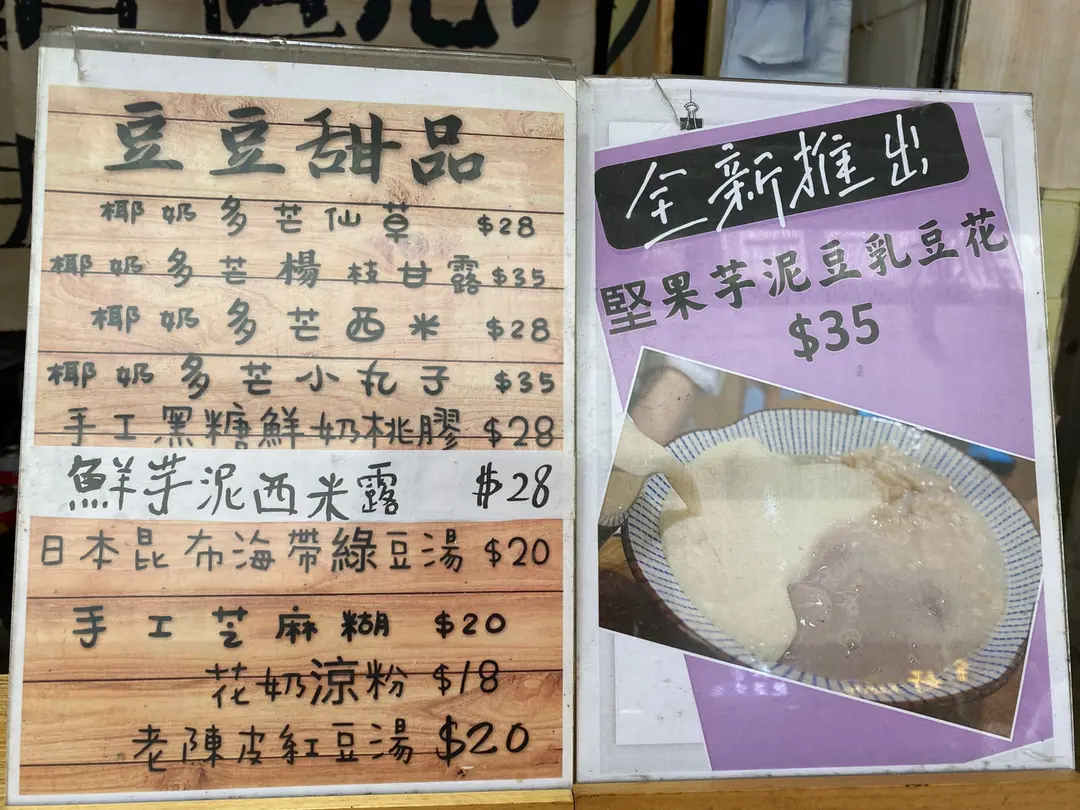 豆豆甜品
椰奶多芒仙草 $28
椰奶多芒楊枝甘露 $35
椰奶多芒西米 $28
椰奶多芒小丸子 $35
手工黑糖鮮奶桃膠 $28
鮮芋泥西米露 $28
日本昆布海帶綠豆湯 $20
手工芝麻糊 $20
花奶涼粉 $18
老陳皮紅豆湯 $20
全新推出
堅果芋泥豆乳豆花
$35